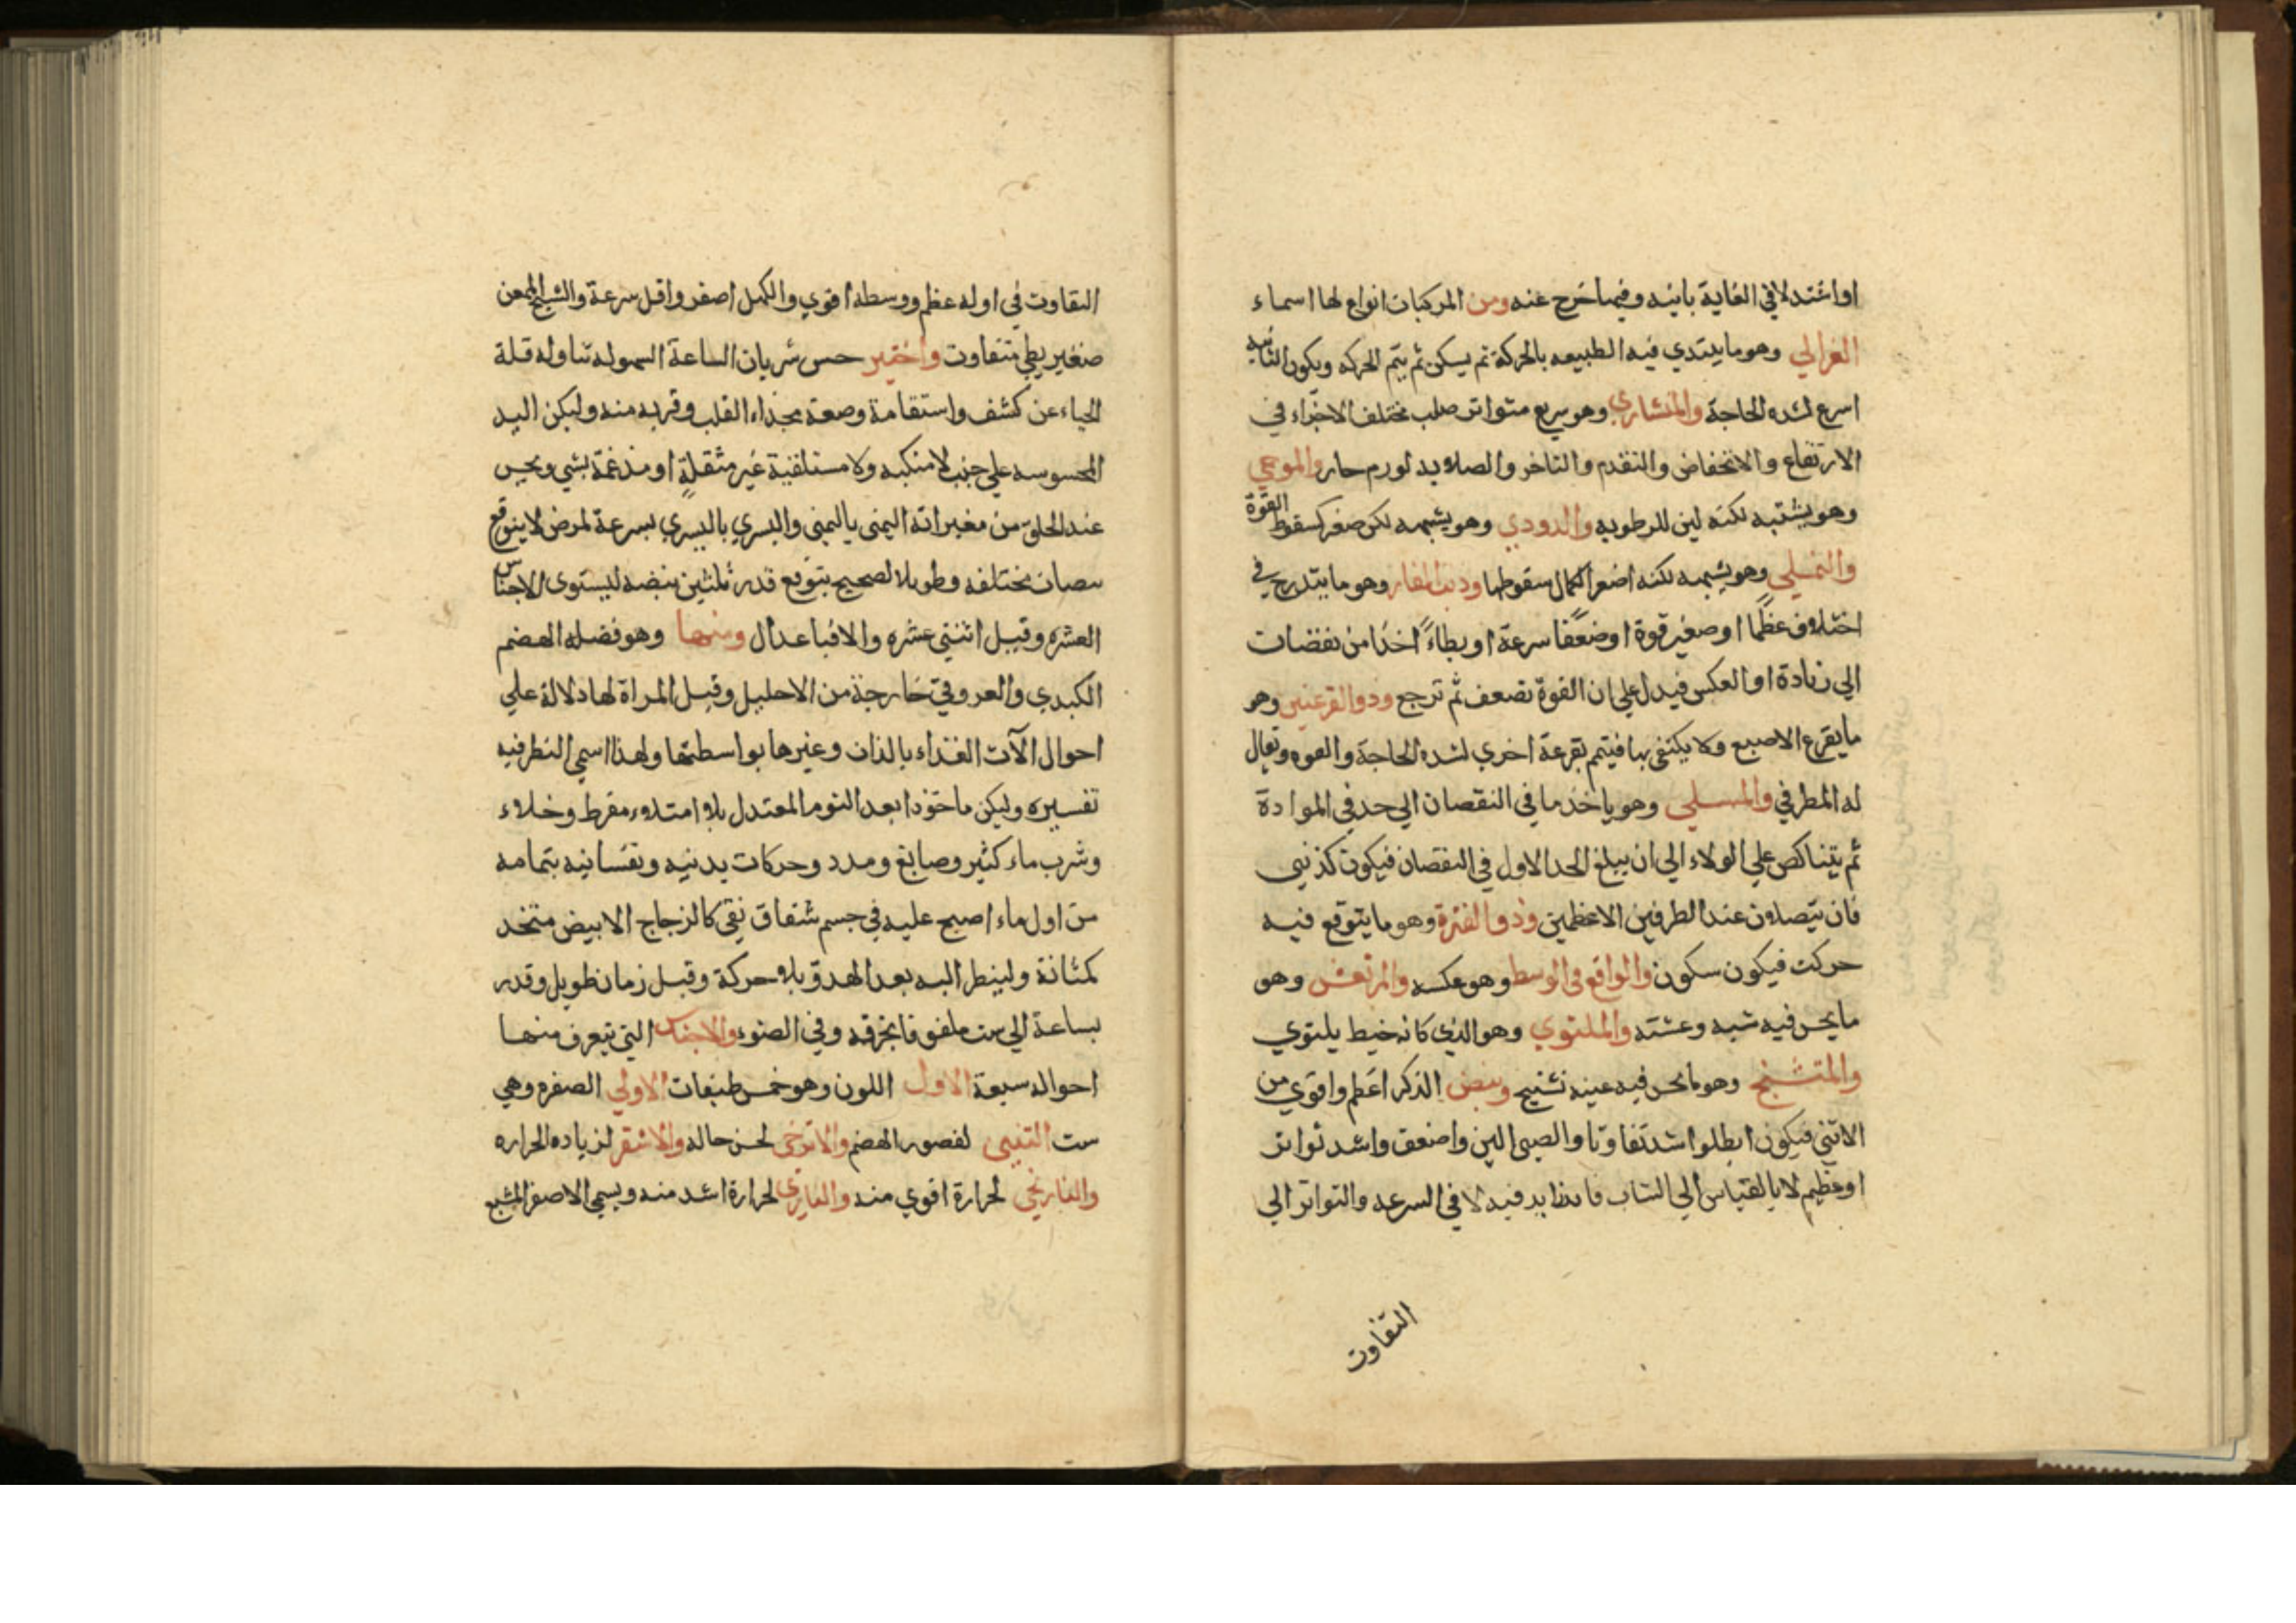 او اشتد لا في الغاية بانيه وفيما خرج عنه ومن المركبات انواع لها اسماء
الغزالي وهو ما يبتدي فيه الطبيعه بالحركة ثم يسكن ثم يتم الحركه ويكون الثانيه
اسرع لشده الحاجة والمنشاري وهو سريع متواتر صلب مختلف الاجزاء في
الارتفاع والانخفاض والتقدم والتاخر والصلابه لورم حار والموجي
وهو يشتبه لكنه لين للرطوبه والدودي وهو يشبهه لكن صغر كسقوط القوة
والنملي وهو يشبهه لكنه اضعر لكمال سقوطها وذنب الفار وهو ما يتدرج في
اختلاف عظما او صغير قوة او ضعفا سرعة او بطاء اخذا من نقضات
الي زيادة او العكس فيدل علي ان القوة تضعف ثم ترجع وذو القرعتين وهو
ما يقرع الاصبع ولا يكتفي بها فيتم بقرعة اخري لشده الحاجة والقوه ويقال
له المطرقي والمسلي وهو ياخذ ما في النقصان الي حد في الموادة
ثم يتناكص علي الولاء الي ان يبلغ الحد الاول في النقصان فيكون كذنبي
فان يتصلان عند الطرفين الاعظمين وذو الفترة وهو ما يتوقع فيه
حركت فيكون سكون والواقع في الوسط وهو عكسه والمرتعش وهو
ما يحس فيه شبه وعشته والملتوي وهو الذي كانه خيط يلتوي
والمتشنج وهو ما يحس فيه عينه تشنيج ونبض الذكر اعظم واقوي من
الانثي فيكون ابطلوا شد تفاوتا والصبي الين واضعف واشد تواتر
او عظيم لا بالقياس الي الشاب فا فيه لا في السرعه والتواتر الي
التفاوت
التفاوت في اوله عظم ووسطه اقوي والكهل اصغر واقل سرعة والشيخ الممعن
صغير بطي متفاوت واختير حس شريان الساعة السهوله تناوله قلة
الحياء عن كشف واستقامة وضعه بحذاء القلب وقربه منه وليكن اليد
المحسوسه علي جنب لا منكبه ولا مستلقية غير مثقلة او مندغمة بشي ويحس
عند الحلق من مغيراته اليمنى باليمنى واليسري باليسري بسرعة لمرض لا يتوقع
نبضان مختلفه وطويلا لصحيح يتوقع قدر ثلثين نبضه ليستوي الاجناس
العشره وقيل اثنتي عشره والا فباعدال ومنها وهو فضله الهضم
الكبدي والعروقي خارجة من الاحليل وقبل المراة لها دلالة علي
احوال الآت الغذاء بالذات وغيرها بواسطتها ولهذا اسمي النظر فيه
تفسيره وليكن ماخوذا بعد النوم المعتدل بلا امتلاء مفرط وخلاء
وشرب ماء كثير وصابغ ومدد وحركات بدنيه ونفسانيه بتمامه
من اول ماء اصبح عليه في جسم شفاف نقي كالزجاج الابيض متخذ
كمثانة ولينظر اليه بعد الهدو بلا حركة وقبل زمان طويل وقدر
بساعة الي ست ملفو فا بخرقه وفي الضوء والاجناس التي يتعرف منها
احواله سبعة الاول اللون وهو خمس طبقات الاولي الصفره وهي
ست التبني لقصور الهضم والاترجي لحسن حاله والاشقر لزياده الحراره
والنارنجي لحرارة اقوي منه والناري لحرارة اشد منه ويسمي الاصفر المشبع